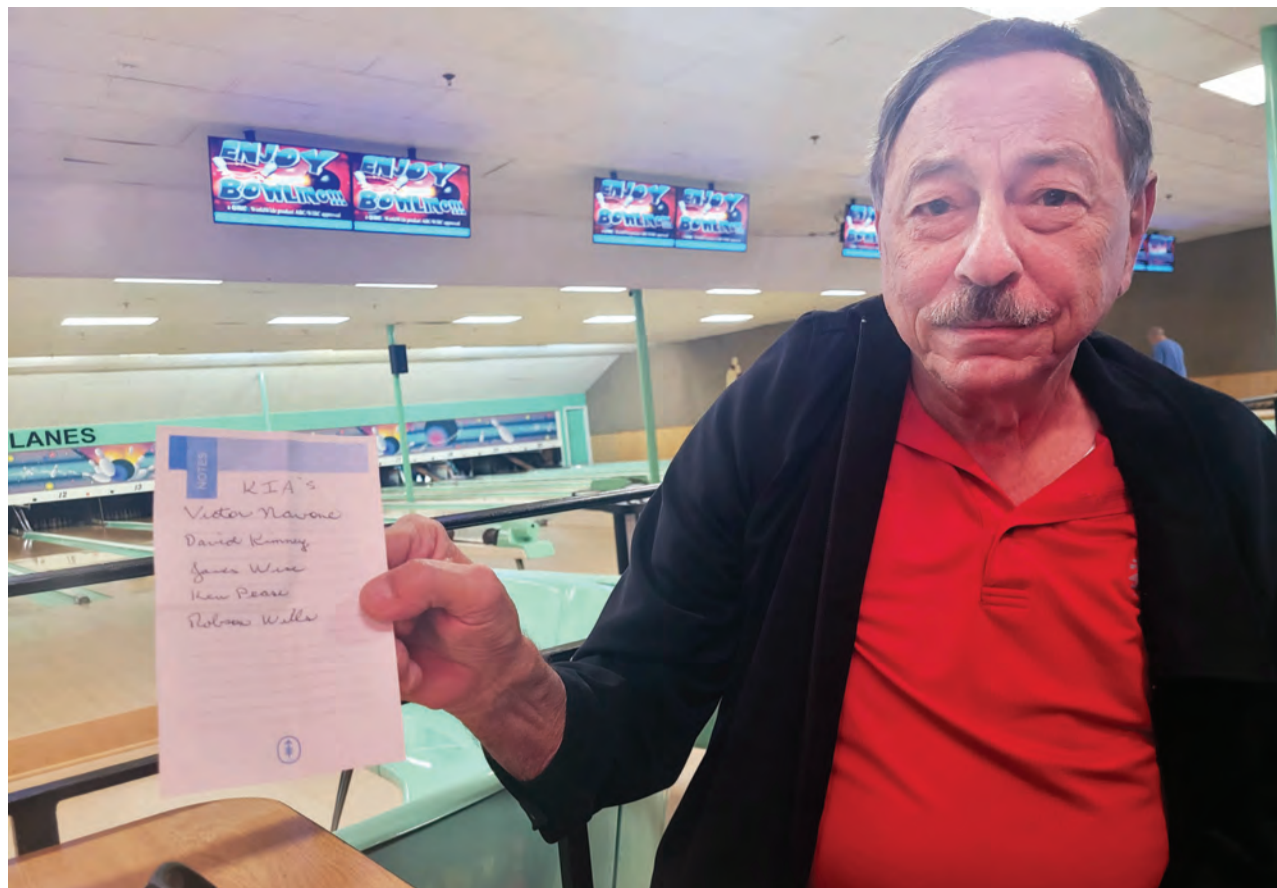 ENJOY
BOWLING!!!
ENJOY
BOWLING!!!
ENJOY
BOWLING!!!
ENJOY
BOWLING!!!
LANES
12
13
NOTES
KIA's
Victor Navone
David Kimney
James Wise
Ken Pease
Robson Wills